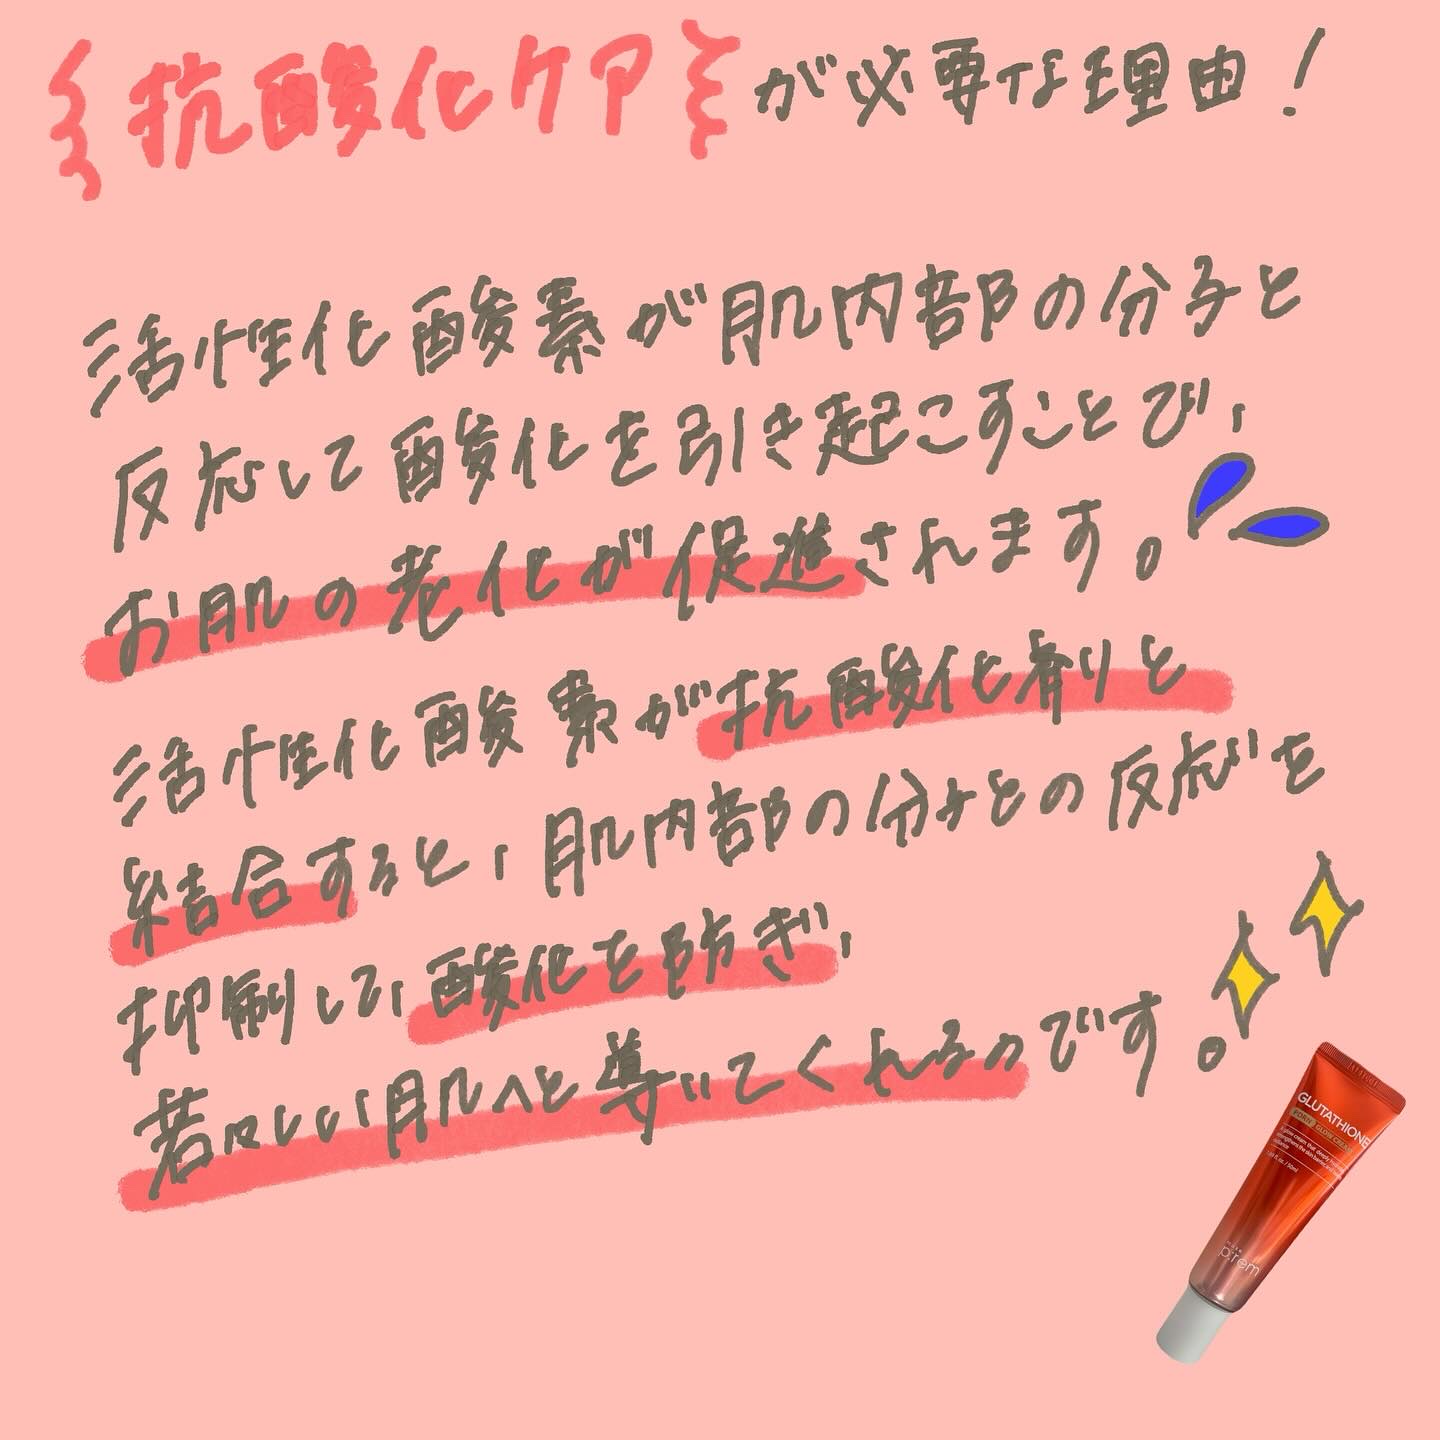 抗酸化ケアが必要な理由！
活性化酸素が肌内部の分子と
反応して酸化を引き起こすことで、
お肌の老化が促進されます。
活性化酸素が抗酸化剤と
結合すると、肌内部の分子との反応を
抑制して、酸化を防ぎ、
若々しい肌へと導いてくれるのです。
GLUTATHIONE
GLOW CREAM
make
p:rem